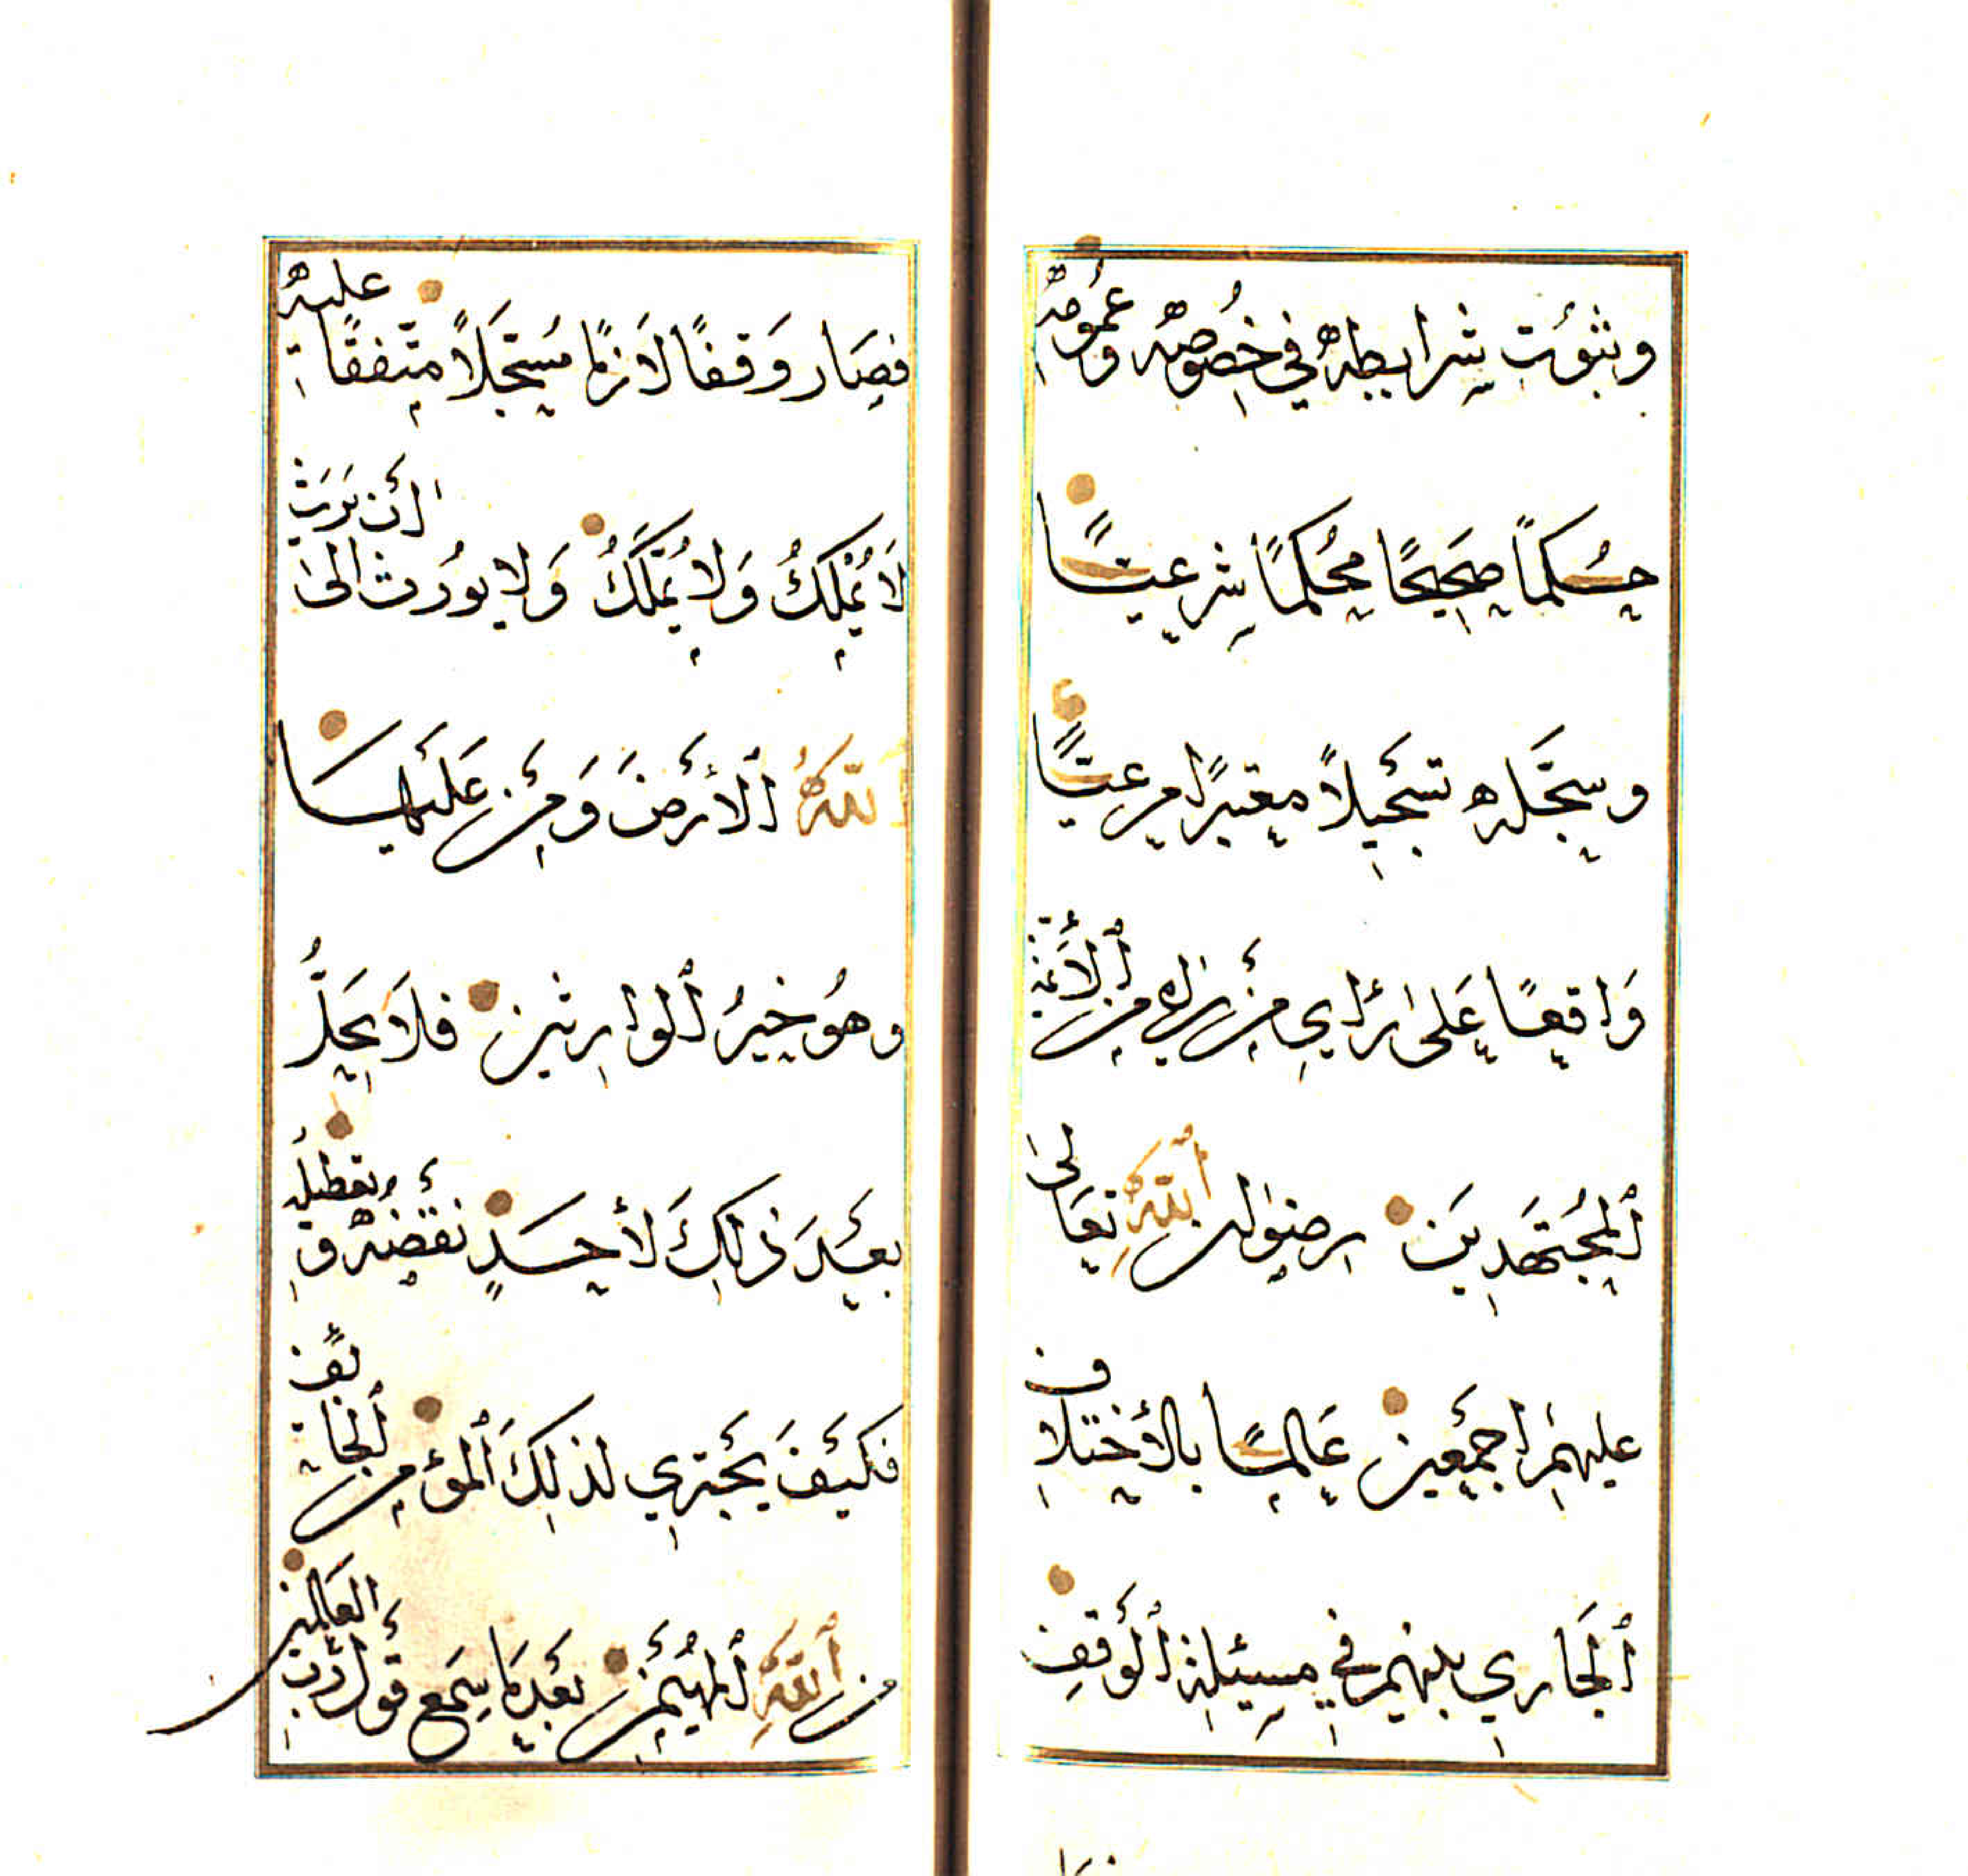 وبثبوُتِ شرايطهُ في خُصُوصِهُ وَعُمُومِهُ
حُكمًا صَحِيحًا مُحكمًا شرعيًّا
وسجّله تسجْيلاً معتبرًا مرعيًّا
وَاقعًا عَلى رَاي مِنْ راه من ٱلأَئمّة
ٱلمجُتَهدِينَ رضوان ٱللهُ تعَالىٰ
عليهمْ اجمَعْين عَالمًا بالأختلاف
ٱلجَاري بينهم في مسئلة ٱلوَقْفِ
فصَار وَقفًا لاَزمًا مُسَجّلاً متّفقًا عليهُ
لاَ يُمْلكُ وَلا يُمَّلَّكُ وَلا يوُرَث الىٰ ان يَرَثَ
ٱللهُ ٱلأرْضَ وَمَنْ عَلَيْهَا
وهوُ خيرُ ٱلوارثين فلاَ يحَلُّ
بعْدَ ذٰلِكَ لأحَدٍ نقْضُهُ وتعطيلهُ
فكيْفَ يجْتري لذلكَ ٱلمؤمن ٱلخائف
من ٱللهِ ٱلمهَيْمنْ بعْدَ مَا سَمع قَوْل رَبّ العَالمين